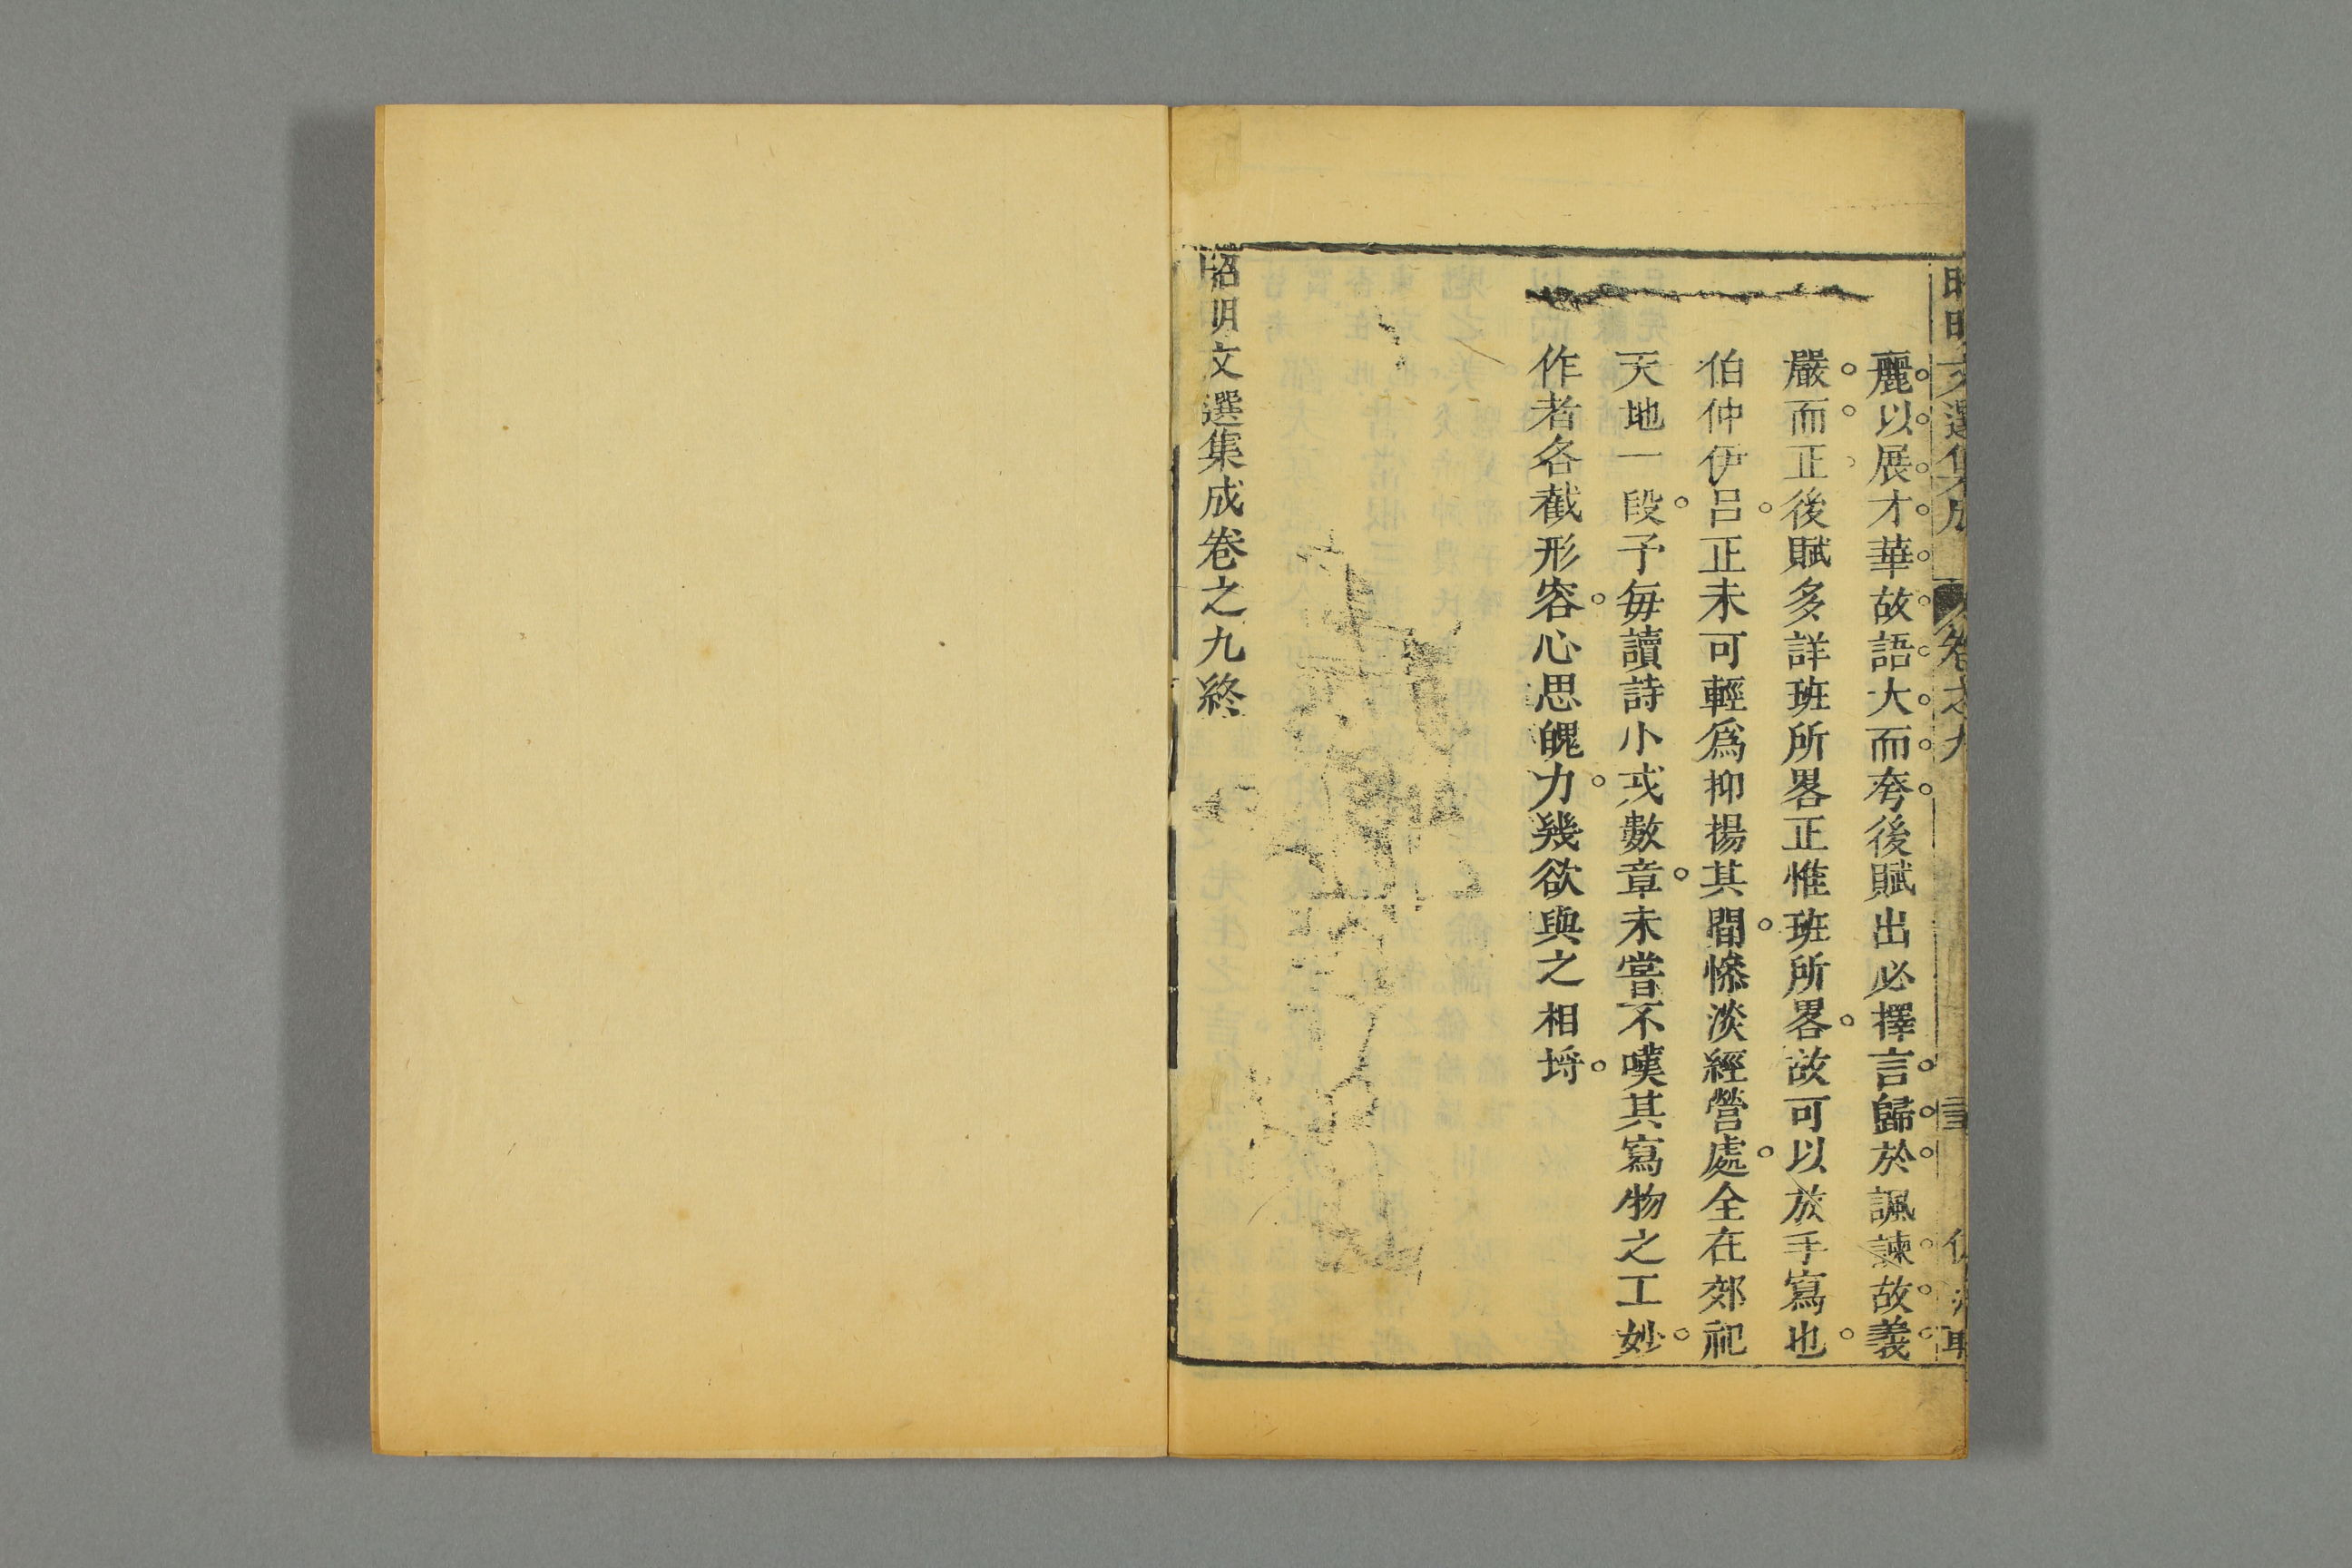 麗以展才華故語大而夸後賦出必擇言歸於諷諫故義
嚴而正後賦多詳班所畧正惟班所畧故可以放手寫也
伯仲伊呂正未可輕爲抑揚其間慘淡經營處全在郊祀
天地一段予每讀詩小戎數章未嘗不嘆其寫物之工妙
作者各截形容心思魄力幾欲與之相埒
昭明文選集成卷之九終